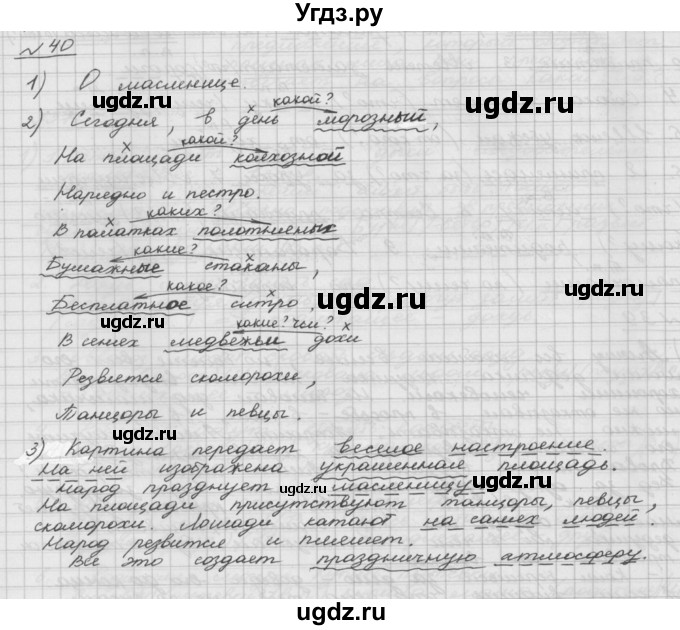 Угдз.ру
№ 40
1) О масленице.
какой?
2) Сегодня, в день морозный,
какой?
На площади колхозной
Нарядно и пестро.
каких?
В палатках полотняных
какие?
Бумажные стаканы,
какое?
Бесплатное ситро,
какие? чьи?
В сенях медвежьи дохи
Резвятся скоморохи,
Танцоры и певцы.
3) Картина передает веселое настроение.
На ней изображена украшенная площадь.
Народ празднует масленицу.
На площади присутствуют танцоры, певцы,
скоморохи. Лошади катают на санях людей.
Народ резвится и пляшет.
Все это создает праздничную атмосферу.
ugdz.ru
ugdz.ru
ugdz.ru
ugdz.ru
ugdz.ru
ugdz.ru
ugdz.ru
ugdz.ru
ugdz.ru
ugdz.ru
ugdz.ru